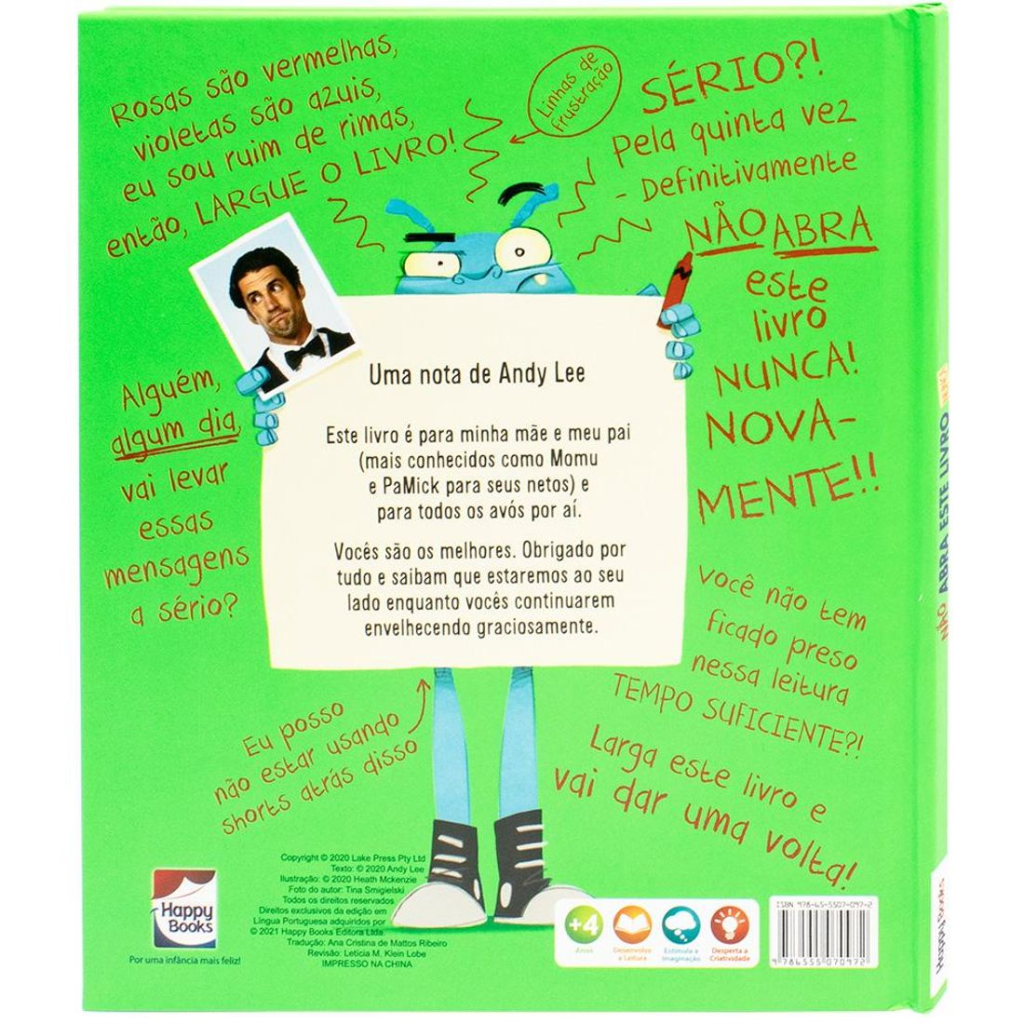 Rosas são vermelhas,
violetas são azuis,
eu sou ruim de rimas,
então, LARGUE O LIVRO!
Linhas de
frustração
SÉRIO?!
Pela quinta vez
- Definitivamente
NÃO ABRA
este
livro
NUNCA!
NOVA-
MENTE!!
Alguém,
algum dia,
vai levar
essas
mensagens
a sério?
Uma nota de Andy Lee
Este livro é para minha mãe e meu pai
(mais conhecidos como Momu
e PaMick para seus netos) e
para todos os avós por aí.
Vocês são os melhores. Obrigado por
tudo e saibam que estaremos ao seu
lado enquanto vocês continuarem
envelhecendo graciosamente.
Você não tem
ficado preso
nessa leitura
TEMPO SUFICIENTE?!
Larga este livro e
vai dar uma volta!
Eu posso
não estar usando
shorts atrás disso
Copyright © 2020 Lake Press Pty Ltd
Texto: © 2020 Andy Lee
Ilustração: © 2020 Heath Mckenzie
Foto do autor: Tina Smigielski
Todos os direitos reservados
Direitos exclusivos da edição em
Língua Portuguesa adquiridos por
© 2021 Happy Books Editora Ltda.
Tradução: Ana Cristina de Mattos Ribeiro
Revisão: Letícia M. Klein Lobe
IMPRESSO NA CHINA
Happy
Books
Por uma infância mais feliz!
+4
Anos
Desenvolve
a Leitura
Estimula a
Imaginação
Desperta a
Criatividade
ISBN 978-65-5507-097-2
9 786555 070972
NÃO ABRA ESTE LIVRO
Happy Books